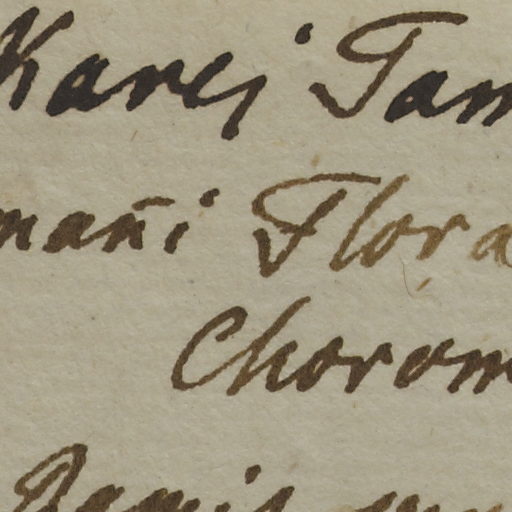 Karej Tam
mañi Flora
Chorom